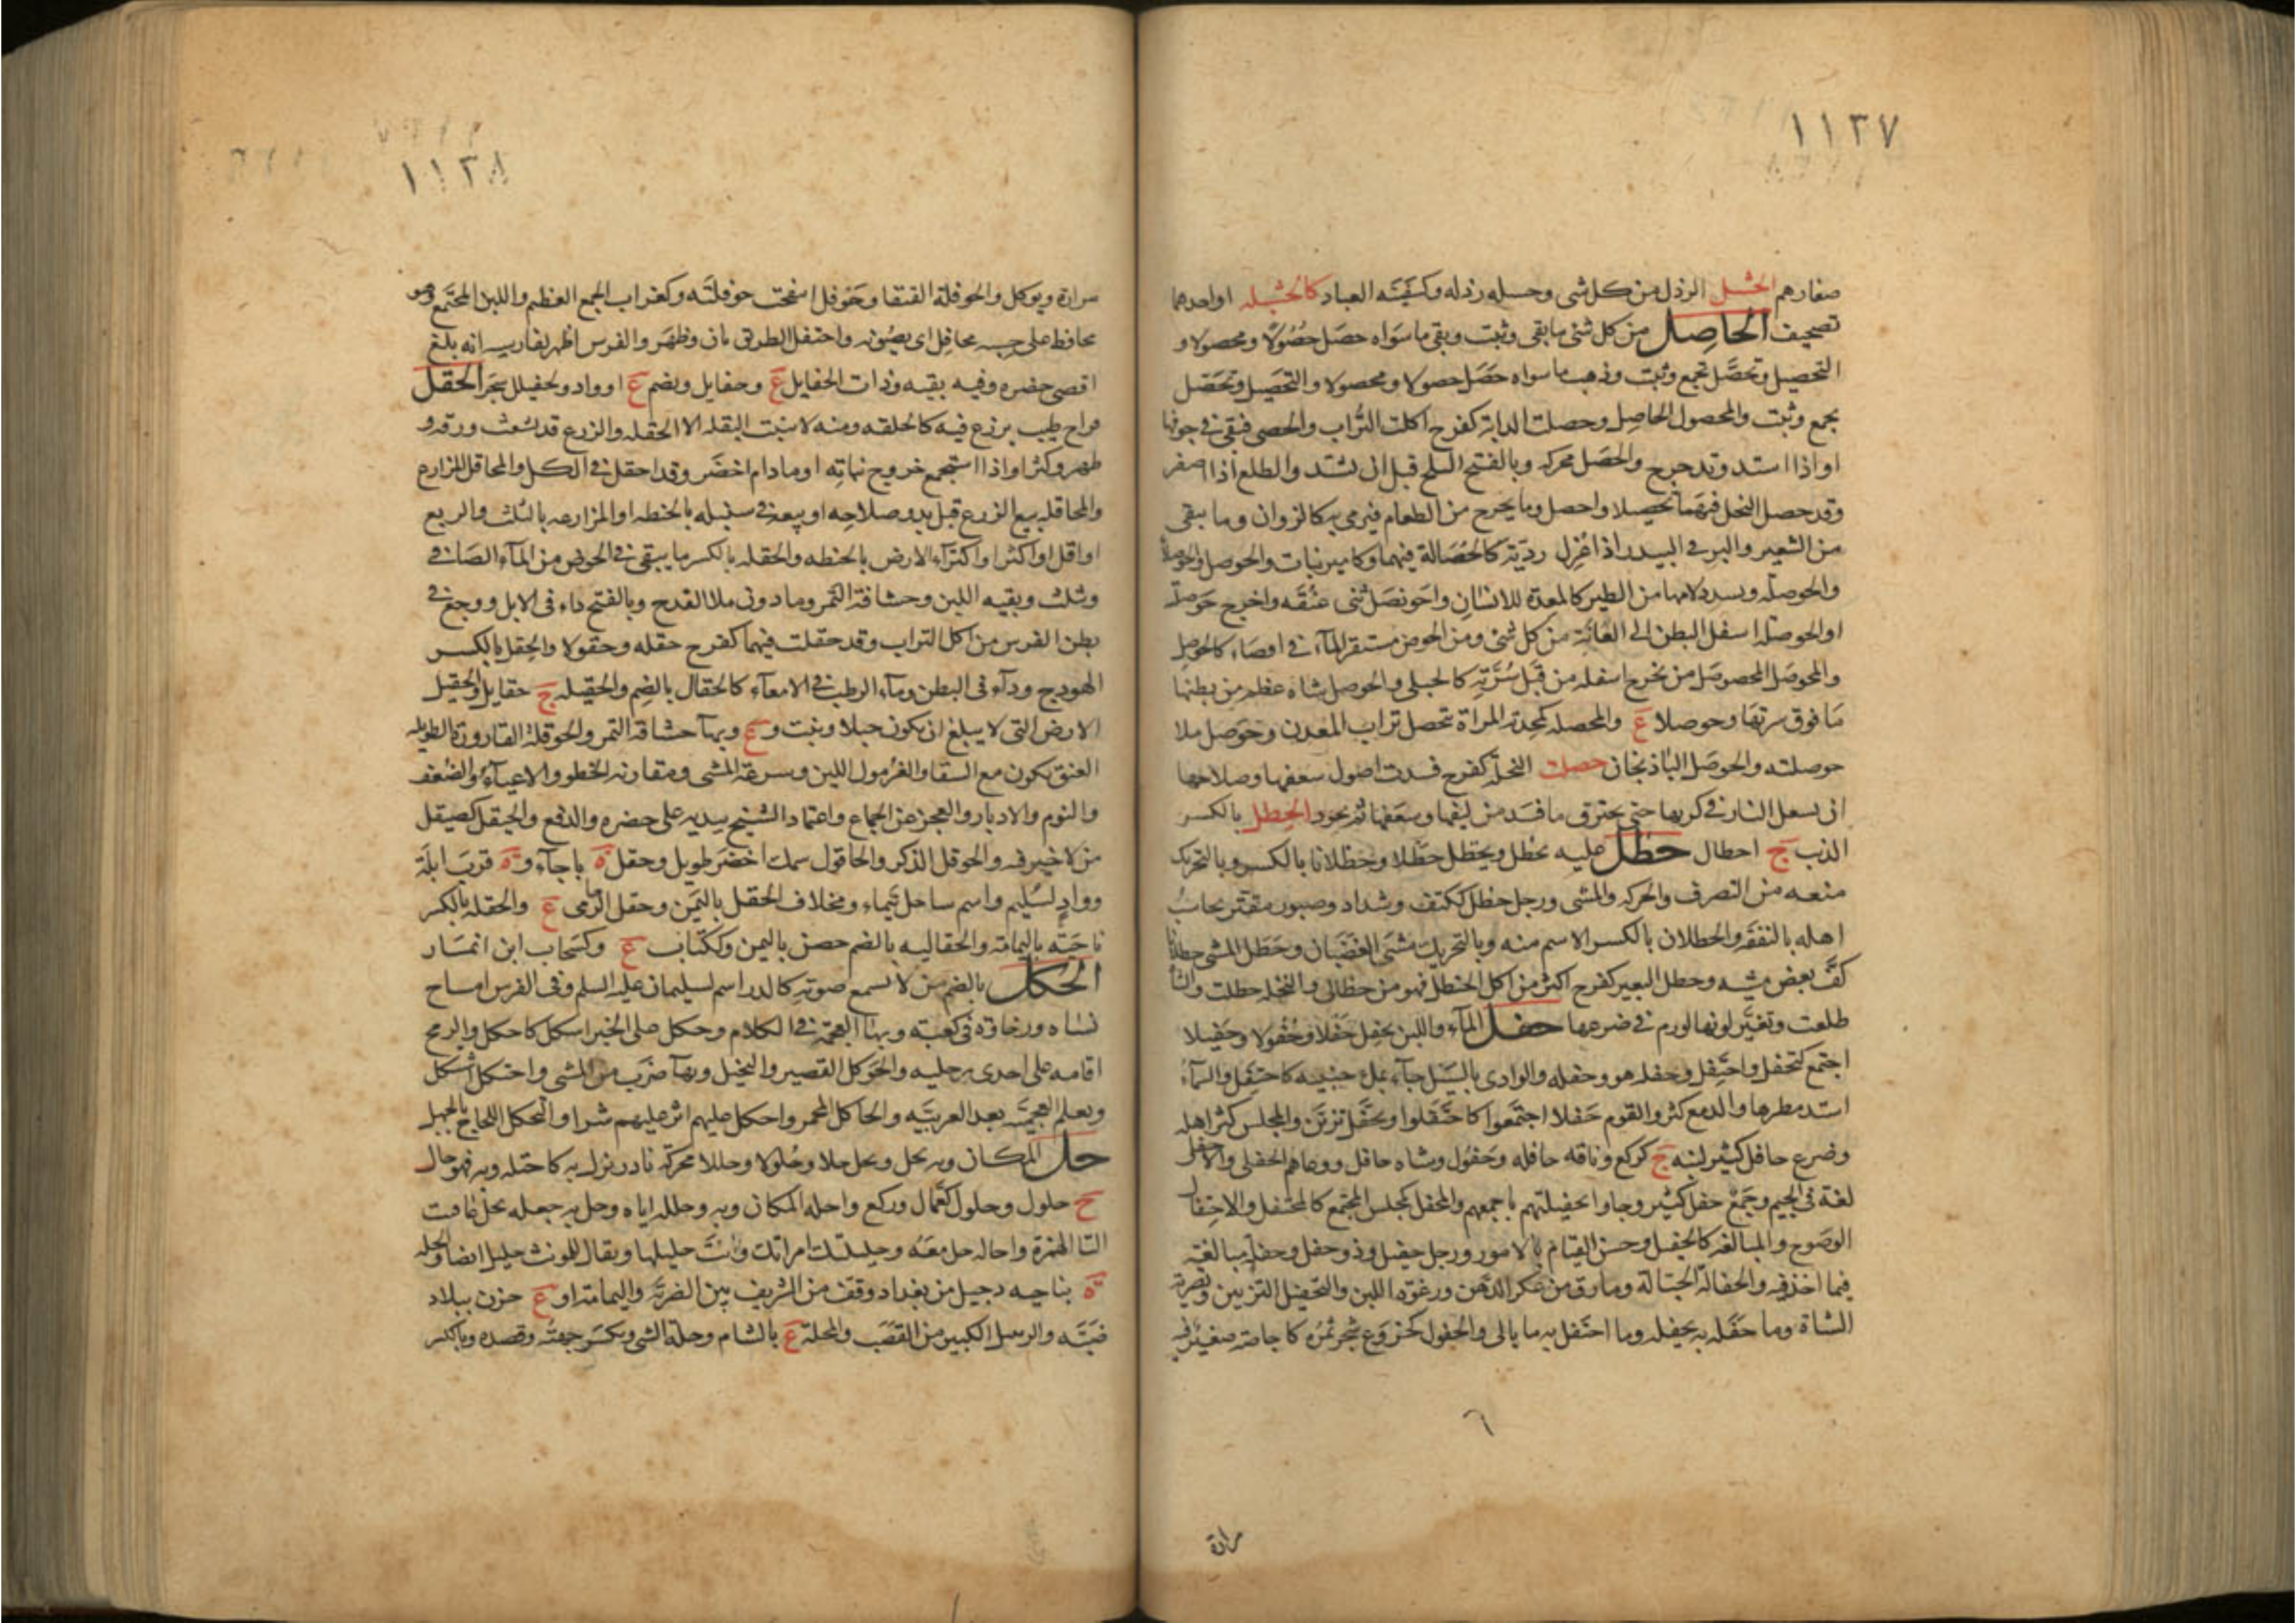 ١١٣٧
صغارهم الحشل الرذل من كل شى وحسله رذله وكسفينة العباد كالحشيله اواحدهما
تصحيف الحاصل من كل شئ ما بقى وثبت وبقى ما سواه حصل حصُولاً ومحصولا و
التحصيل وتحصّل تجمع وثبت وذهب ما سواه حَصَل حصولا ومحصولا والتحصيل وتحصّل
تجمع وثبت والمحصول الحاصل وحصلت الدابة كفرح اكلت التُراب والحصى فبقى فى جوفها
او اذا استد وتدحرج والحصَل محركه وبالفتح البلح قبل ان يشتد والطلع اذا اصفر
وقد حصل النخل فيهما تحصيلا واحصل وما يخرج من الطعام فيرمى به كالزوان وما يبقى
من الشعير والبر فى البيدر اذا عُزل رديّه كالحُصَالة فيهما وكامير نبات والحوصل والحوصلا
والحوصلة وتشدد لامها من الطير كالمعدة للانسان واحونصَل ثنى عنُقَه واخرج حَوصلته
او الحوصلة اسفل البطن الى العَانَة من كل شئ ومن الحوض مستقر المآء فى اقصاه كالحوصل
والمحوصَل المحصوصَل من يخرج اسفله من قبَل سُرَّتِه كالحبلى والحوصل شاة عظم من بطنها
مَا فوق سرتها وحوصلا ع والمحصله كمحدثه المراة تحصل تراب المعدن وحَوصل ملا
حوصلته والحوصَل الباذنجان حصلت النخلة كفرح فسدت اصول سعفها وصلاحها
ان يشعل النار فى كربها حتى يحترق ما فسَد من ليفها وسَعَفها ثم تجود الحِطل بالكسر
الذئب ج احطال حظل عليه يحظل ويحظل حَظلا وحظلانا بالكسر وبالتحريك
منعه من التصرف والحركه والمشى ورجل حظل ككتف وشداد وصبور مقتّر يحاسب
اهله بالنفقه والحظلان بالكسر الاسم منه وبالتحريك مشىَ الغضبَان وحَظَل المشى حظلانا
كفَّ بعض مشيه وحظل البعير كفرح اكثر من اكل الحنظل فهو من حظالى والنخله حظلت والشاة
ظلعت وتغيّر لونها لورم فى ضرعها حفل المآء واللبن يحفِل حَفلا وحُفُولا وحَفِيلا
اجتمع كتحفل واحتفل وحفله هو وحفله والوادى بالسّيل جآء بملء جنبيه كاحتفل والسمآء
اشتد مطرها والدمع كثر والقوم حَفلا اجتَمعوا كاحتَفَلوا وتحفّل تزيّن والمجلس كثر اهله
وضرع حافل كثير لبنه ج كركع وناقه حافله وحَفُول وشاة حافل ودعاهم الحفلى والاحفلى
لغة فى الجيم وجَمعٌ حفل كثير وجاوا بحفيلتهم باجمعهم والمحفل كمجلس المجتمع كالمحتفل والاحتفال
الوضوح والمبالغه كالحفيل وحسن القيام بالامور ورجل حفيل وذو حفل وحفله مبالغة
فيما اخذ فيه والحفالة الحثالة وما رق من عكر الدّهن ورغوة اللبن والتحفيل التزيين وتصرية
الشاة وما حفَله به يحفِله وما احتفل به ما بالى والحفول كخروَع شجر ثمرُه كاجاصة صغيرٌ فيه
٦
مرارة
١١٣٨
مرارة ويوكل والحوفلة القنفا وحَوفل انتفخت حوفلَته وكغراب الجمع العظيم واللبن المجتَمع وهو
محافظ على حسبه محافِل اى يصُونه واحتفل الطريق بان وظهَر والفرس اظهر لفارسه انه بلغ
اقصى حضره وفيه بقيه وذات الحفايل ع وحفايل ويضم ع او واد وكحفيلل شجَر الحقل
قراح طيب يزرع فيه كالحلقه ومنه لا ينبت البقله الا الحقله والزرع قد تشعث ورقه و
ظهر وكثر او اذا استجمع خروج نباتِه او ما دام اخضَر وقد احقل فى الكل والمحاقل المزارع
والمحاقله بيع الزرع قبل بدو صلاحه او بيعه فى سنبله بالحنطه او المزارعه بالثلث والربع
او اقل او اكثر او اكتراء الارض بالحنطه والحقله بالكسر ما يبقى فى الحوض من المآء الصَافى
وثلث وبقيه اللبن وحشافة التمر وما دون ملا القدح وبالفتح داء فى الابل ووجع فى
بطن الفرس من اكل التراب وقد حقلت فيهما كفرح حقله وحقولا والحِقل بالكسر
الهودج ودآء فى البطن ومآء الرطب فى الامعآء كالحقال بالضم والحقيله ج حقايل والحقيل
الارض التى لا يبلغ ان يكون جبلا ونبت و ع وبهآ حشافة التمر والحوقلة القارورة الطويله
العنق تكون مع السقا والغرمول اللين وسرعة المشى ومقاربه الخطو والاعيآءُ والضعف
والنوم والادبار والعجز عن الجماع واعتماد الشيخ بيديه على خصره والدفع والحيقل كصيقل
من لا خير فيه والحوقل الذكر والحاقول سمك اخضر طويل وحقل ة باجآء و ة قربَ ايلَة
وواد لسُليم واسم ساحل تَيماء ومخلاف الحقل باليَمن وحقل الرامى ع والحقله بالكسر
ناحيَة باليمامة والحقاليه بالضم حصن باليمن وككتاب ع وكسَحاب ابن انمَار
الحُكل بالضم من لا يسمع صوته كالذر اسم لسليمان عليه السلم وفى الفرس امساح
نساه ورخاوة فى كعبه وبهآ العجمَة فى الكلام وحكل على الخبر اشكل كاحكل والرمح
اقامه على احدى رجليه والحَوكل القصير والبخيل وبهآ ضَرب من المشى واحتكل اشتكل
وتعلم العجميَّه بعد العربيَّه والحاكل المخمر واحكل عليهم اثر عليهم شرا والتحكل اللجاج بالجهل
حل المكان وبه يحل ويحل حلا وحُلولا وحللا محركة نادر نزل به كاحتله وبه فهو حال
ح حلول وحلول كعُمال وركع واحله المكان وبه وحلله اياه وحل به جعله يحل عاقبت
التا الهمزة واحاله حل معَه وحليلتك امراتك وانتَ حليلها ويقال للمونث حليل ايضا والحله
ة بناحيه دجيل من بغداد وقف من الشريف بين الضريّه واليمامة او ع حزن ببلاد
ضَبَّه والزبيل الكبير من القصَب والمحلة ع بالشام وحلة الشى ويكسَر جهته وقصده وبالكسر